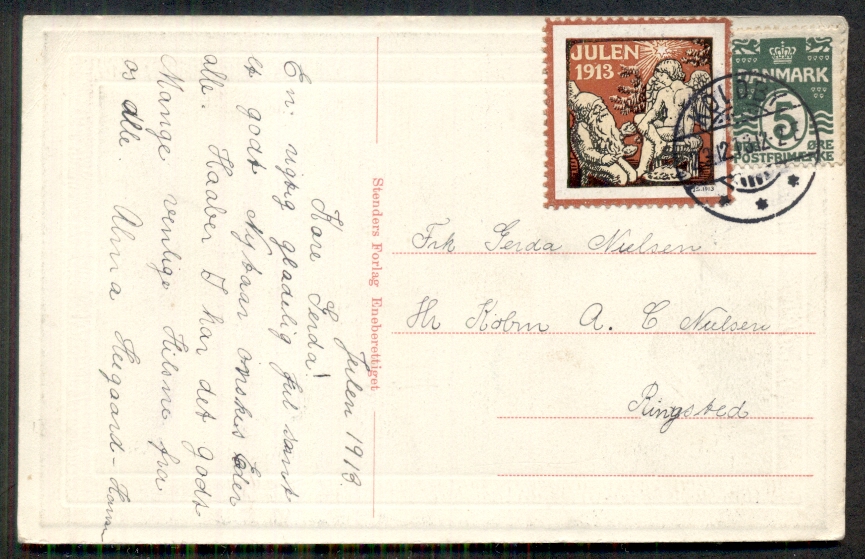 JULEN
1913
DANMARK
5
ØRE
POSTFRIMÆRKE
Frk Gerda Nielsen
Hr Købm A. C Nielsen
Ringsted
Stenders Forlag Eneberettiget
Julen 1913.
Kære Gerda!
En rigtig glædelig Jul samt
et godt Nytaar ønskes Eder
alle. Haaber I har det godt
Mange venlige Hilsner fra
os alle. Alma